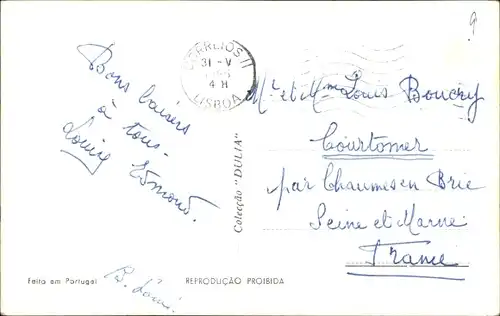 Bons baisers
à tous -
Louise Edmond.
CORREIOS II
31 - V
4 H
LISBOA
Mr et Mme Louis Bouchy
Courtomer
par Chaumes en Brie
Seine et Marne
France
Colecção "DULIA"
Feito em Portugal
REPRODUÇÃO PROIBIDA